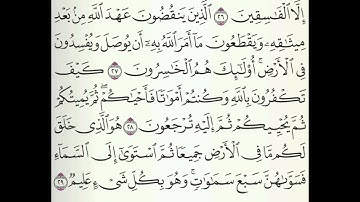 إِلَّا ٱلْفَـٰسِقِينَ ٢٦ ٱلَّذِينَ يَنقُضُونَ عَهْدَ ٱللَّهِ مِنۢ بَعْدِ
مِيثَـٰقِهِۦ وَيَقْطَعُونَ مَآ أَمَرَ ٱللَّهُ بِهِۦٓ أَن يُوصَلَ وَيُفْسِدُونَ
فِى ٱلْأَرْضِ ۚ أُو۟لَـٰٓئِكَ هُمُ ٱلْخَـٰسِرُونَ ٢٧ كَيْفَ
تَكْفُرُونَ بِٱللَّهِ وَكُنتُمْ أَمْوَٰتًا فَأَحْيَـٰكُمْ ۖ ثُمَّ يُمِيتُكُمْ
ثُمَّ يُحْيِيكُمْ ثُمَّ إِلَيْهِ تُرْجَعُونَ ٢٨ هُوَ ٱلَّذِى خَلَقَ
لَكُم مَّا فِى ٱلْأَرْضِ جَمِيعًا ثُمَّ ٱسْتَوَىٰٓ إِلَى ٱلسَّمَآءِ
فَسَوَّىٰهُنَّ سَبْعَ سَمَـٰوَٰتٍ ۚ وَهُوَ بِكُلِّ شَىْءٍ عَلِيمٌ ٢٩